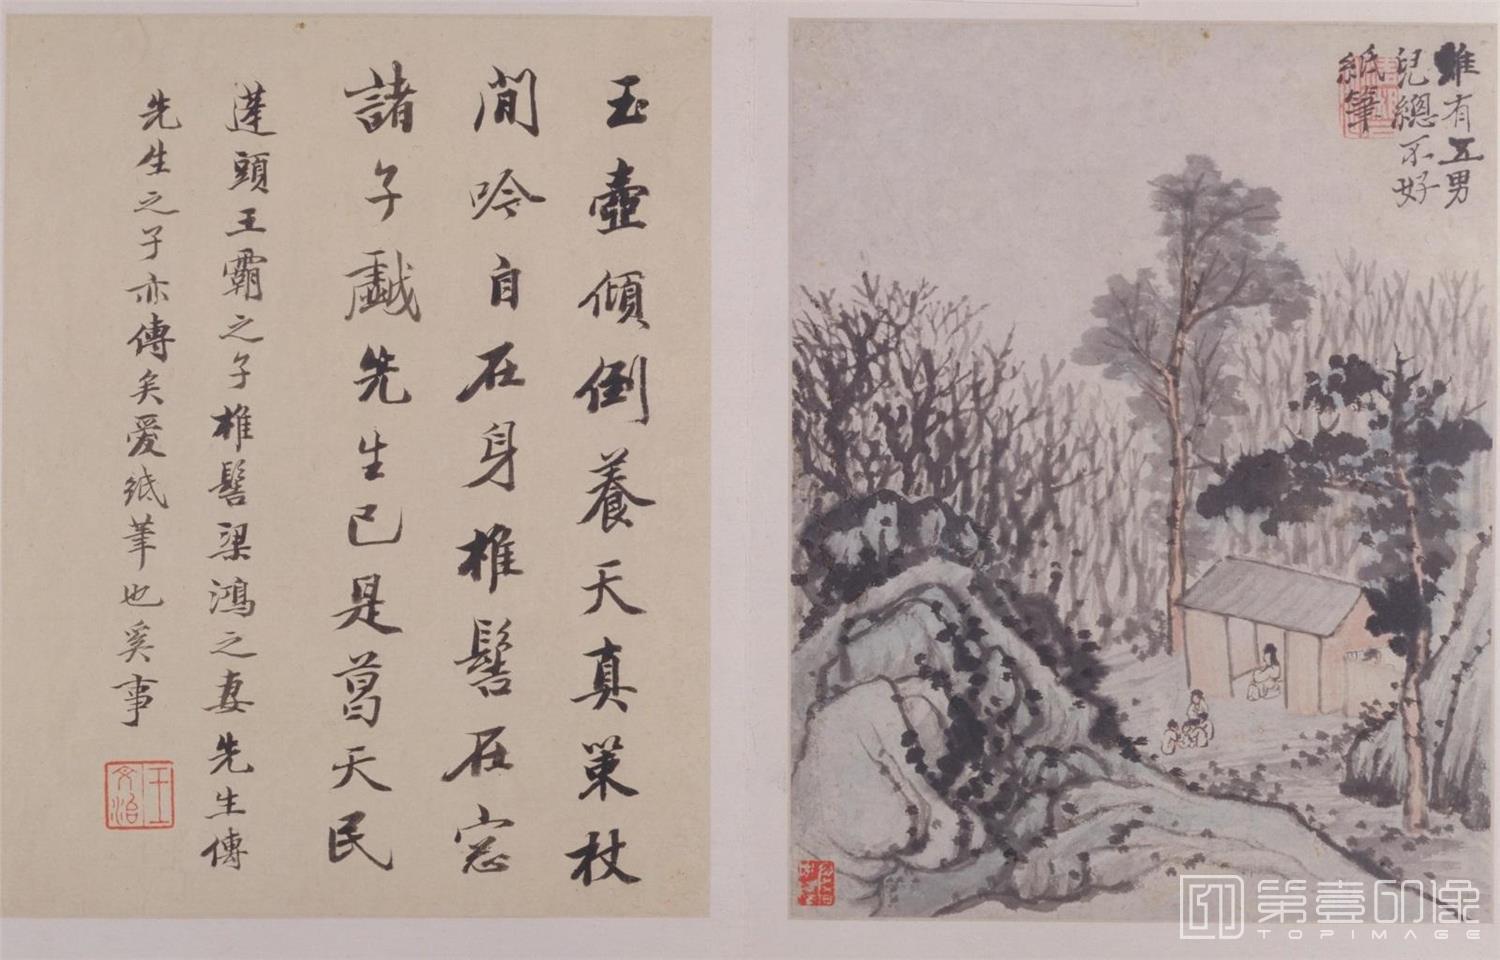 雖有五男
兒總不好
紙筆
玉壺傾倒養天真策杖
閒吟自在身椎髻在窓
諸子戲先生已是葛天民
蓬頭王霸之子椎髻梁鴻之妻先生傳
先生之子亦傳矣愛紙筆也奚事
王文治
第壹印像
TOPIMAGE